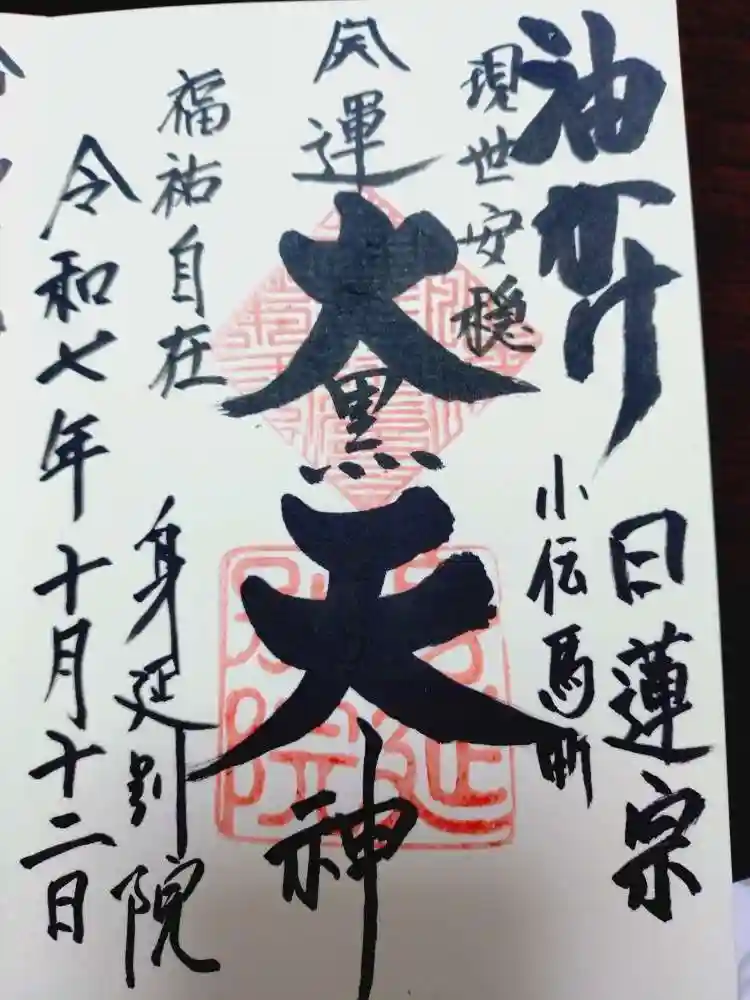 油かけ
日蓮宗
現世安穏
小伝馬町
開運
大黒天神
福祐自在
身延別院
令和七年十月十二日